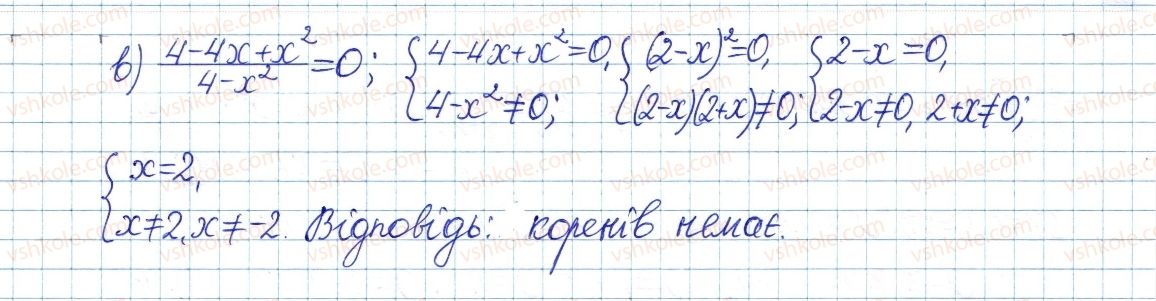 в) (4-4x+x²)/(4-x²)=0; { 4-4x+x²=0, 4-x²≠0; { (2-x)²=0, (2-x)(2+x)≠0; { 2-x=0, 2-x≠0, 2+x≠0;
{ x=2, x≠2, x≠-2. Відповідь: коренів немає.